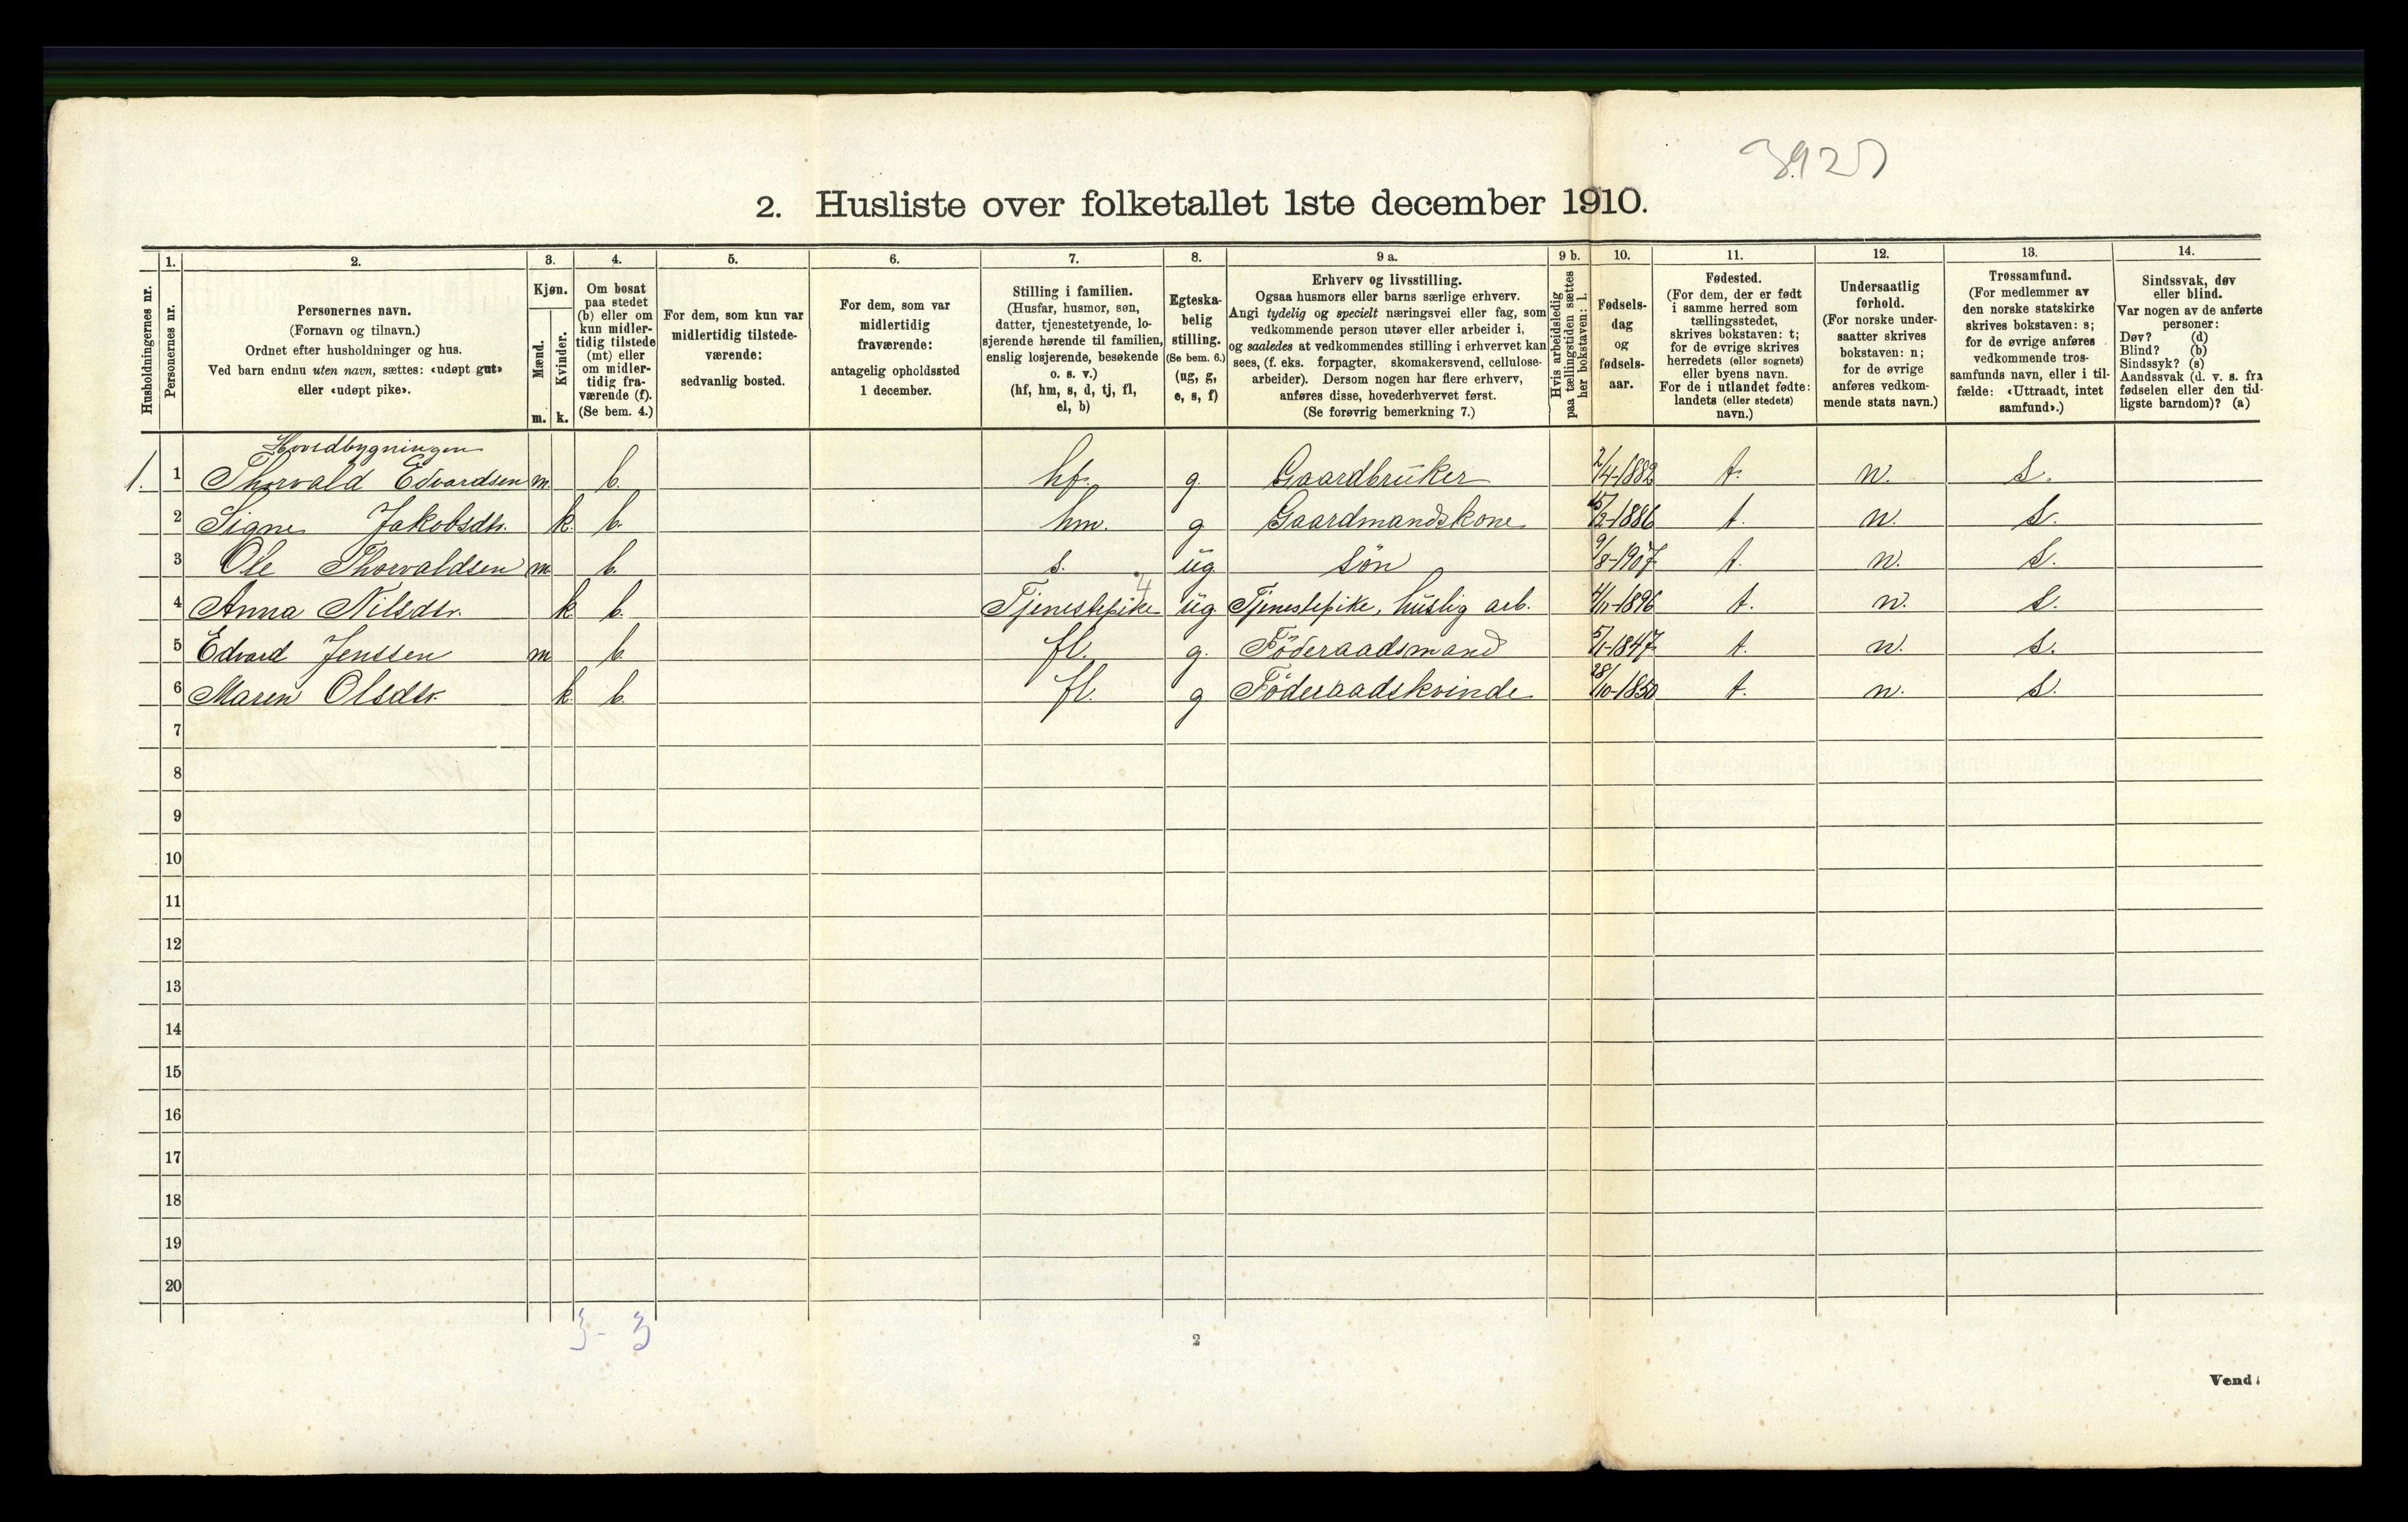 3927
2. Husliste over folketallet 1ste december 1910.
Husholdningernes nr.
1.
Personernes nr.
2.
Personernes navn.
(Fornavn og tilnavn.)
Ordnet efter husholdninger og hus.
Ved barn endnu uten navn, sættes: «udøpt gut»
eller «udøpt pike».
3.
Kjøn.
Mænd.
Kvinder.
m. k.
4.
Om bosat
paa stedet
(b) eller om
kun midler-
tidig tilstede
(mt) eller
om midler-
tidig fra-
værende (f).
(Se bem. 4.)
5.
For dem, som kun var
midlertidig tilstede-
værende:
sedvanlig bosted.
6.
For dem, som var
midlertidig
fraværende:
antagelig opholdssted
1 december.
7.
Stilling i familien.
(Husfar, husmor, søn,
datter, tjenestetyende, lo-
sjerende hørende til familien,
enslig losjerende, besøkende
o. s. v.)
(hf, hm, s, d, tj, fl,
el, b)
8.
Egteska-
belig
stilling.
(Se bem. 6.)
(ug, g,
e, s, f)
9 a.
Erhverv og livsstilling.
Ogsaa husmors eller barns særlige erhverv.
Angi tydelig og specielt næringsvei eller fag, som
vedkommende person utøver eller arbeider i,
og saaledes at vedkommendes stilling i erhvervet kan
sees, (f. eks. forpagter, skomakersvend, cellulose-
arbeider). Dersom nogen har flere erhverv,
anføres disse, hovederhvervet først.
(Se forøvrig bemerkning 7.)
9 b.
Hvis arbeidsledig
paa tællingstiden sættes
her bokstaven: l.
10.
Fødsels-
dag
og
fødsels-
aar.
11.
Fødested.
(For dem, der er født
i samme herred som
tællingsstedet,
skrives bokstaven: t;
for de øvrige skrives
herredets (eller sognets)
eller byens navn.
For de i utlandet fødte:
landets (eller stedets)
navn.)
12.
Undersaatlig
forhold.
(For norske under-
saatter skrives
bokstaven: n;
for de øvrige
anføres vedkom-
mende stats navn.)
13.
Trossamfund.
(For medlemmer av
den norske statskirke
skrives bokstaven: s;
for de øvrige anføres
vedkommende tros-
samfunds navn, eller i til-
fælde: «Uttraadt, intet
samfund».)
14.
Sindssvak, døv
eller blind.
Var nogen av de anførte
personer:
Døv? (d)
Blind? (b)
Sindssyk? (s)
Aandssvak (d. v. s. fra
fødselen eller den tid-
ligste barndom)? (a)
Hovedbygningen
1. 1 Thorvald Edvardsen m. b. hf. g Gaardbruker 2/4-1882 t. n. s.
2 Signe Jakobsdtr. k. b. hm. g Gaardmandskone 15/2-1886 t. n. s.
3 Ole Thorvaldsen m b. s. ug søn 9/8-1907 t. n. s.
4
4 Anna Nilsdtr. k b. Tjenestepike ug Tjenestepike, huslig arb. 4/11-1896 t. n. s.
5 Edvard Jenssen m b. fl. g. Föderaadsmand 5/1-1847 t. n. s.
6 Maren Olsdtr. k b. fl. g Föderaadskvinde 28/10-1850 t. n. s.
7
8
9
10
11
12
13
14
15
16
17
18
19
20
3- 3
2
Vend